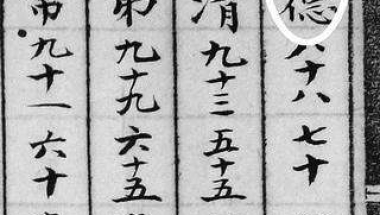 德八十八七十
清九十三五十五
弟九十九六十五
帝九十一六十